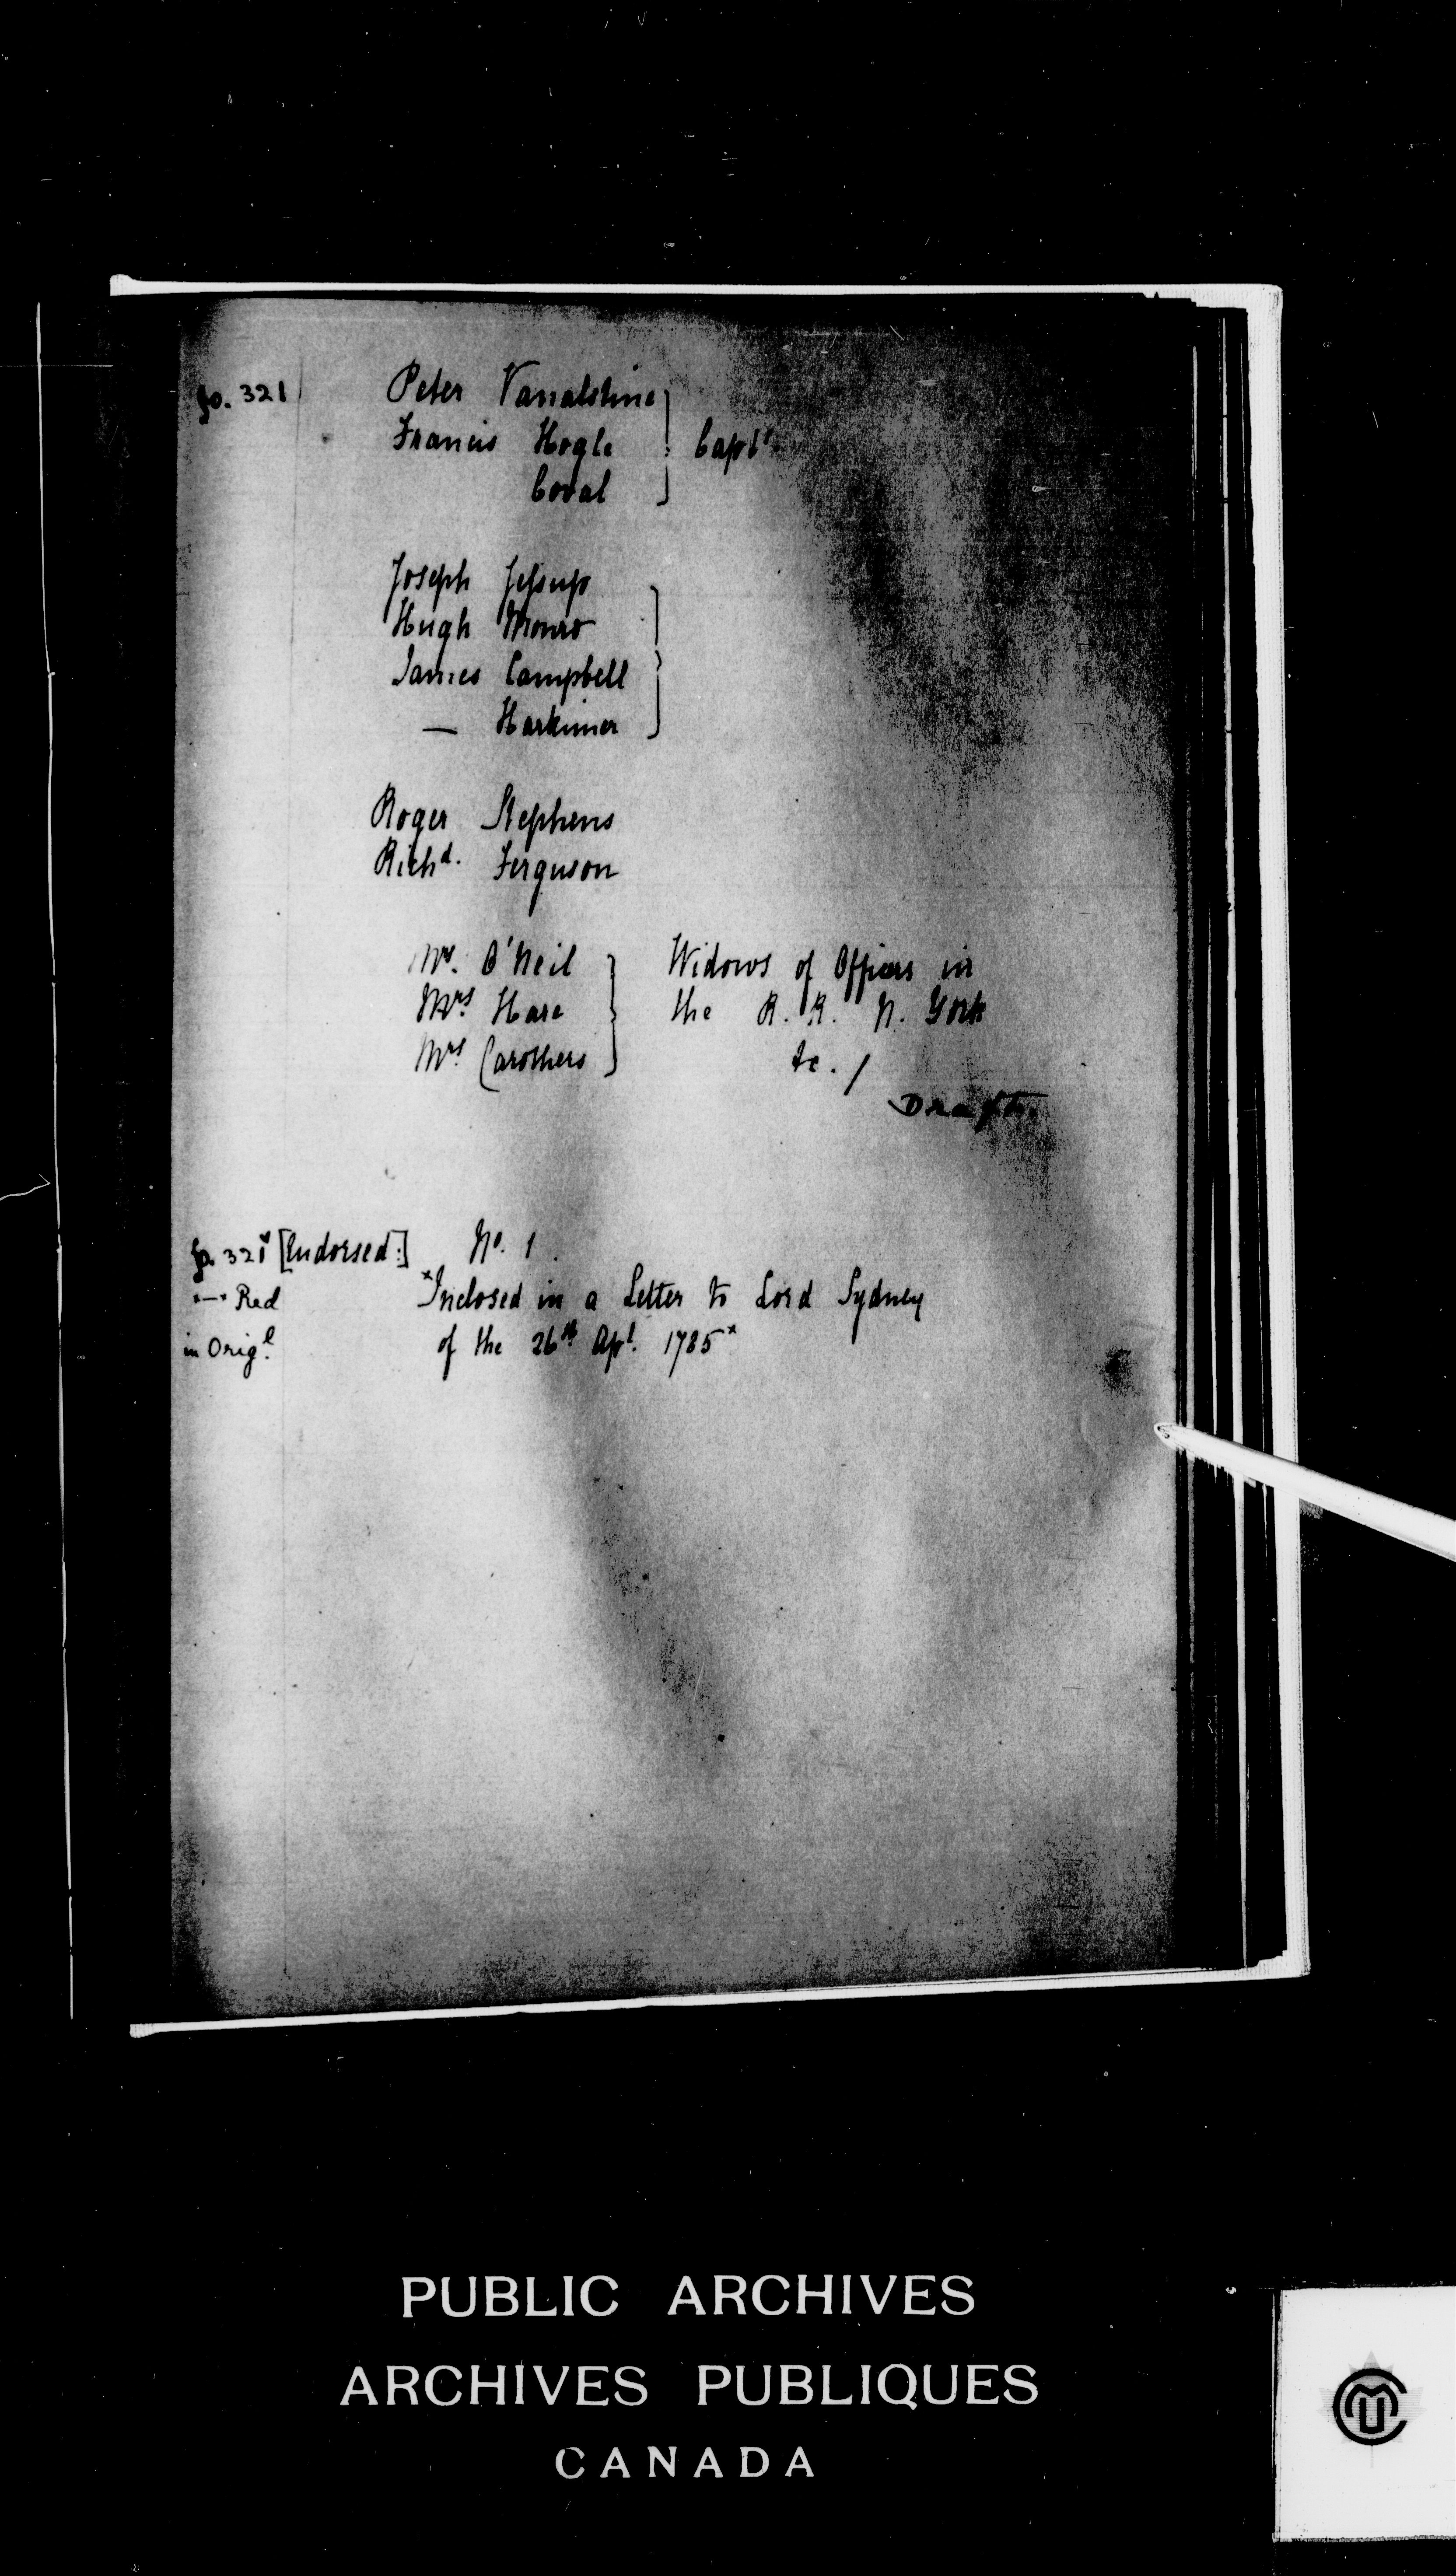 fo. 321 Peter Vanalstine
Francis Hogle } Capts.
Coval
Joseph Jessup
Hugh Monro
James Campbell
— Harkimer
Roger Stephens
Richd. Ferguson
Mrs. O'Neil } Widows of Officers in
Mrs. Hare the R. R. N. York
Mrs. Carothers &c. /
Draft.
fo. 321v [Endorsed:] No. 1.
x—x Red xInclosed in a Letter to Lord Sydney
in Origl. of the 26th Apl. 1785x
PUBLIC ARCHIVES
ARCHIVES PUBLIQUES
CANADA